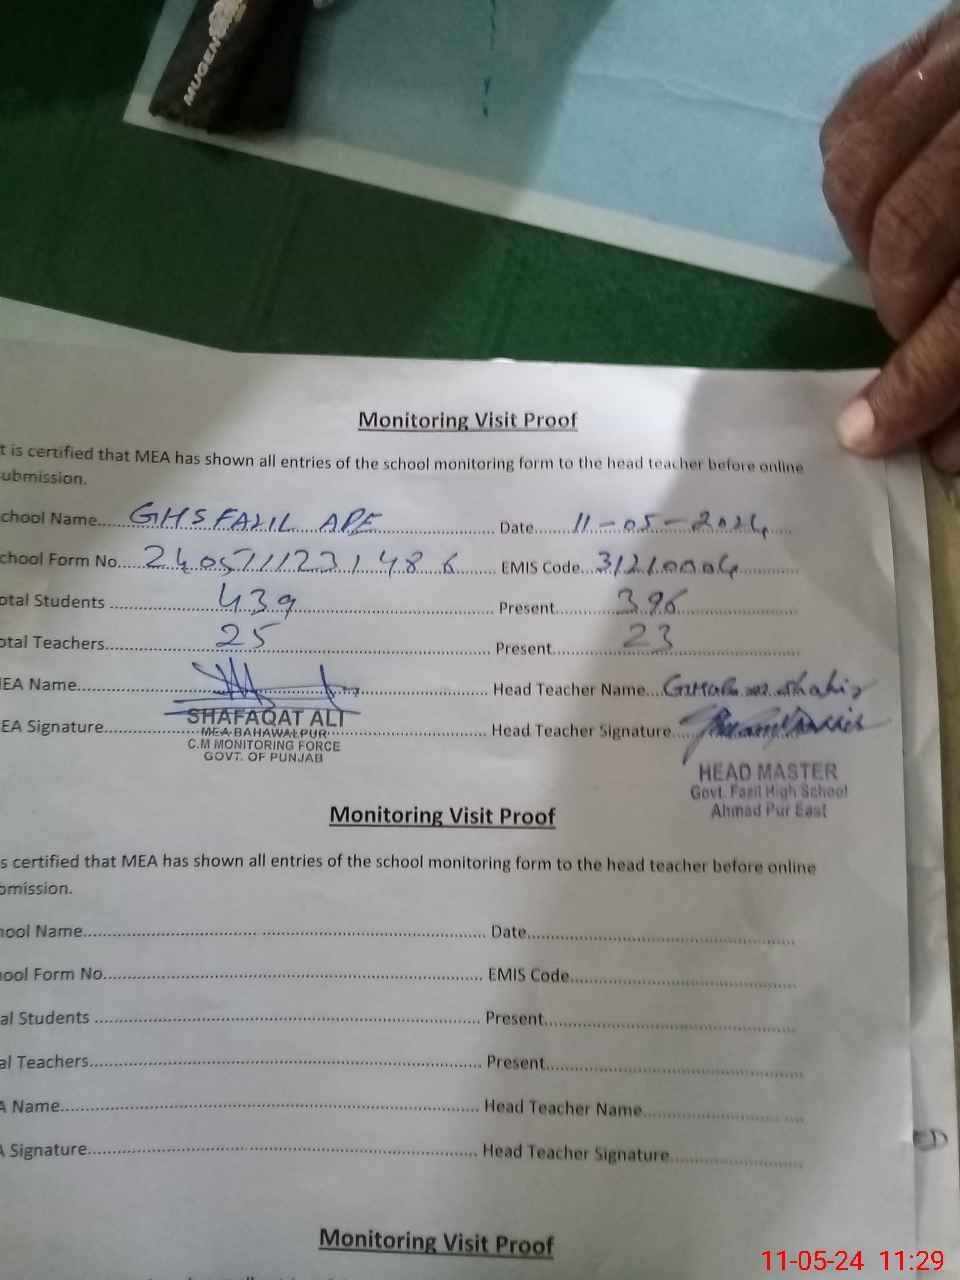 MUGEN
Monitoring Visit Proof
t is certified that MEA has shown all entries of the school monitoring form to the head teacher before online
ubmission.
chool Name GHS FAZIL APE Date 11-05-2024
chool Form No. 2405711231486 EMIS Code 31210004
otal Students 439 Present 396
otal Teachers 25 Present 23
IEA Name Head Teacher Name Shahid
EA Signature Head Teacher Signature
SHAFAQAT ALI
MEA BAHAWALPUR
C.M MONITORING FORCE
GOVT. OF PUNJAB
HEAD MASTER
Govt. Fazil High School
Ahmad Pur East
Monitoring Visit Proof
s certified that MEA has shown all entries of the school monitoring form to the head teacher before online
omission.
hool Name Date
ool Form No. EMIS Code
al Students Present
al Teachers Present
A Name Head Teacher Name
A Signature Head Teacher Signature
ED
Monitoring Visit Proof
11-05-24 11:29